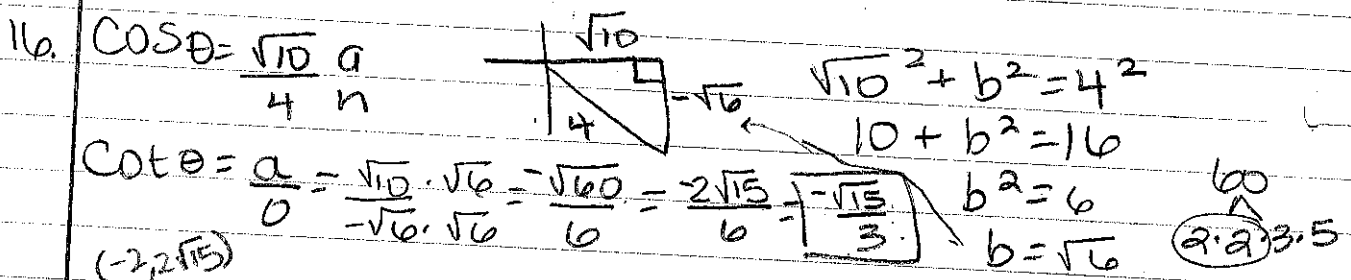 16. COSθ = √10/4 a/h
√10
-√6
4
√10² + b² = 4²
10 + b² = 16
b² = 6
b = √6
60
2·2·3·5
Cotθ = a/o = √10·√6/-√6·√6 = -√60/6 = -2√15/6 = -√15/3
(-2, 2√15)